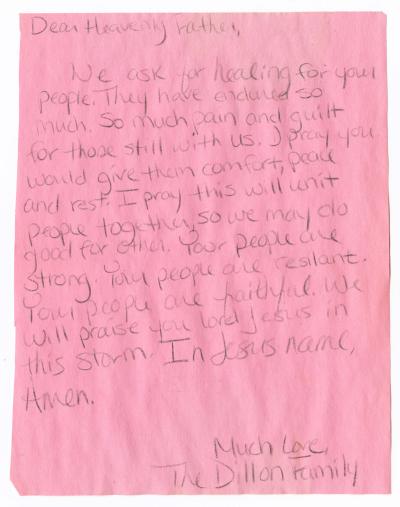 Dear Heavenly Father,
We ask for healing for your
people. They have endured so
much. So much pain and guilt
for those still with us. I pray you
would give them comfort, peace
and rest. I pray this will unit
people together, so we may do
good for other. Your people are
strong. Your people are resilant.
Your people are faithful. We
will praise you lord Jesus in
this storm. In Jesus name,
Amen.
Much Love,
The Dillon Family